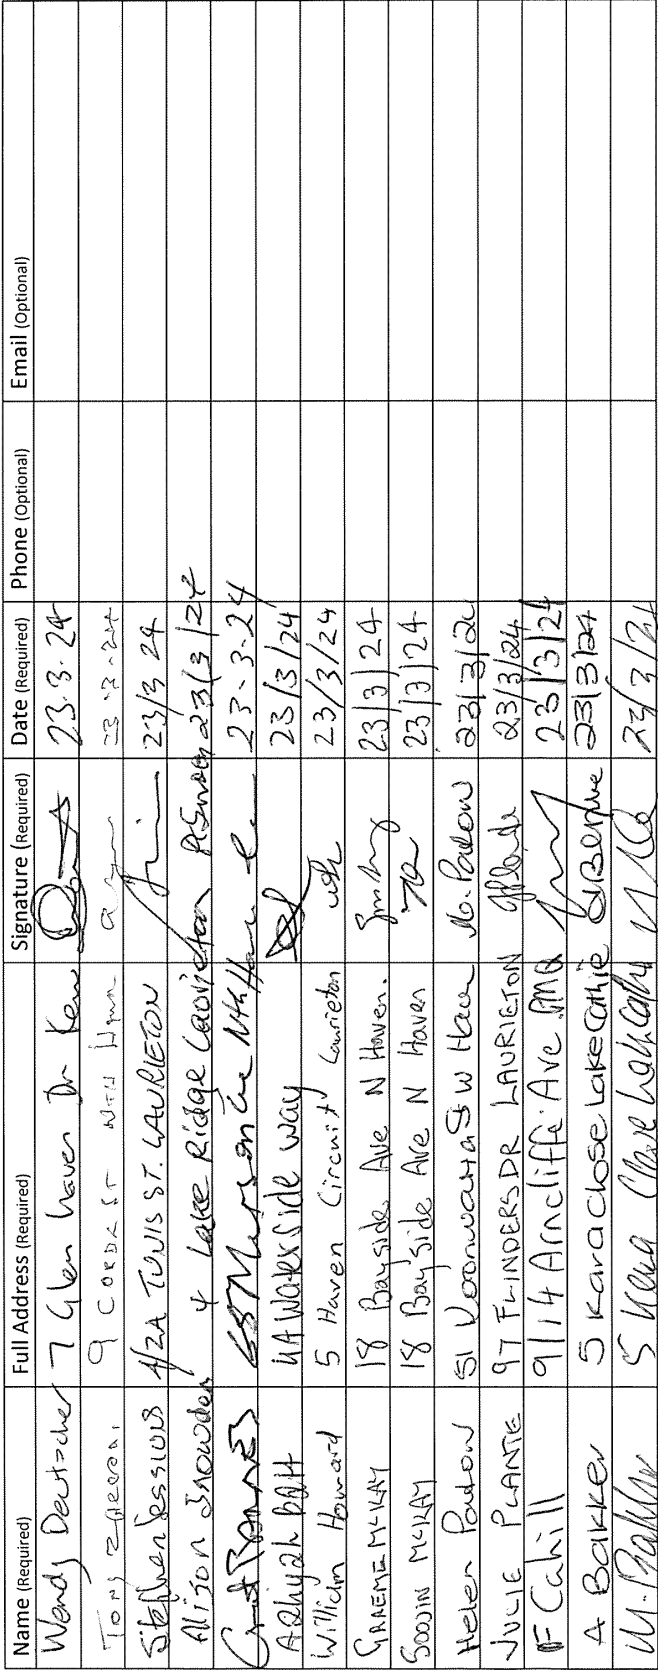 Name (Required) Full Address (Required) Signature (Required) Date (Required) Phone (Optional) Email (Optional)
Wendy Deutscher 7 Glen haven Dr Kew 23.3.24
Tony 9 St Nth 23.3.24
Stephen Sessions 4/2A TUNIS ST. LAURIETON 23/3/24
Alison Snowden 4 Lake Ridge Laurieton ASnowden 23/3/24
Nth Haven 23.3.24
4A Waterside Way 23/3/24
William Howard 5 Haven Circuit Laurieton 23/3/24
GRAEME MCKAY 18 Bayside Ave N Haven. 23/3/24
SOOJIN MCKAY 18 Bayside Ave N Haven 23/3/24
Helen 51 St W Haven 23/3/24
JULIE PLANTE 97 FLINDERS DR LAURIETON 23/3/24
F Cahill 9/14 Arncliffe Ave PMQ 23/3/24
A Bakker 5 Kara close Lake Cathie 23/3/24
M. Bakker 5 Kara Close Lake Cathie 23/3/24